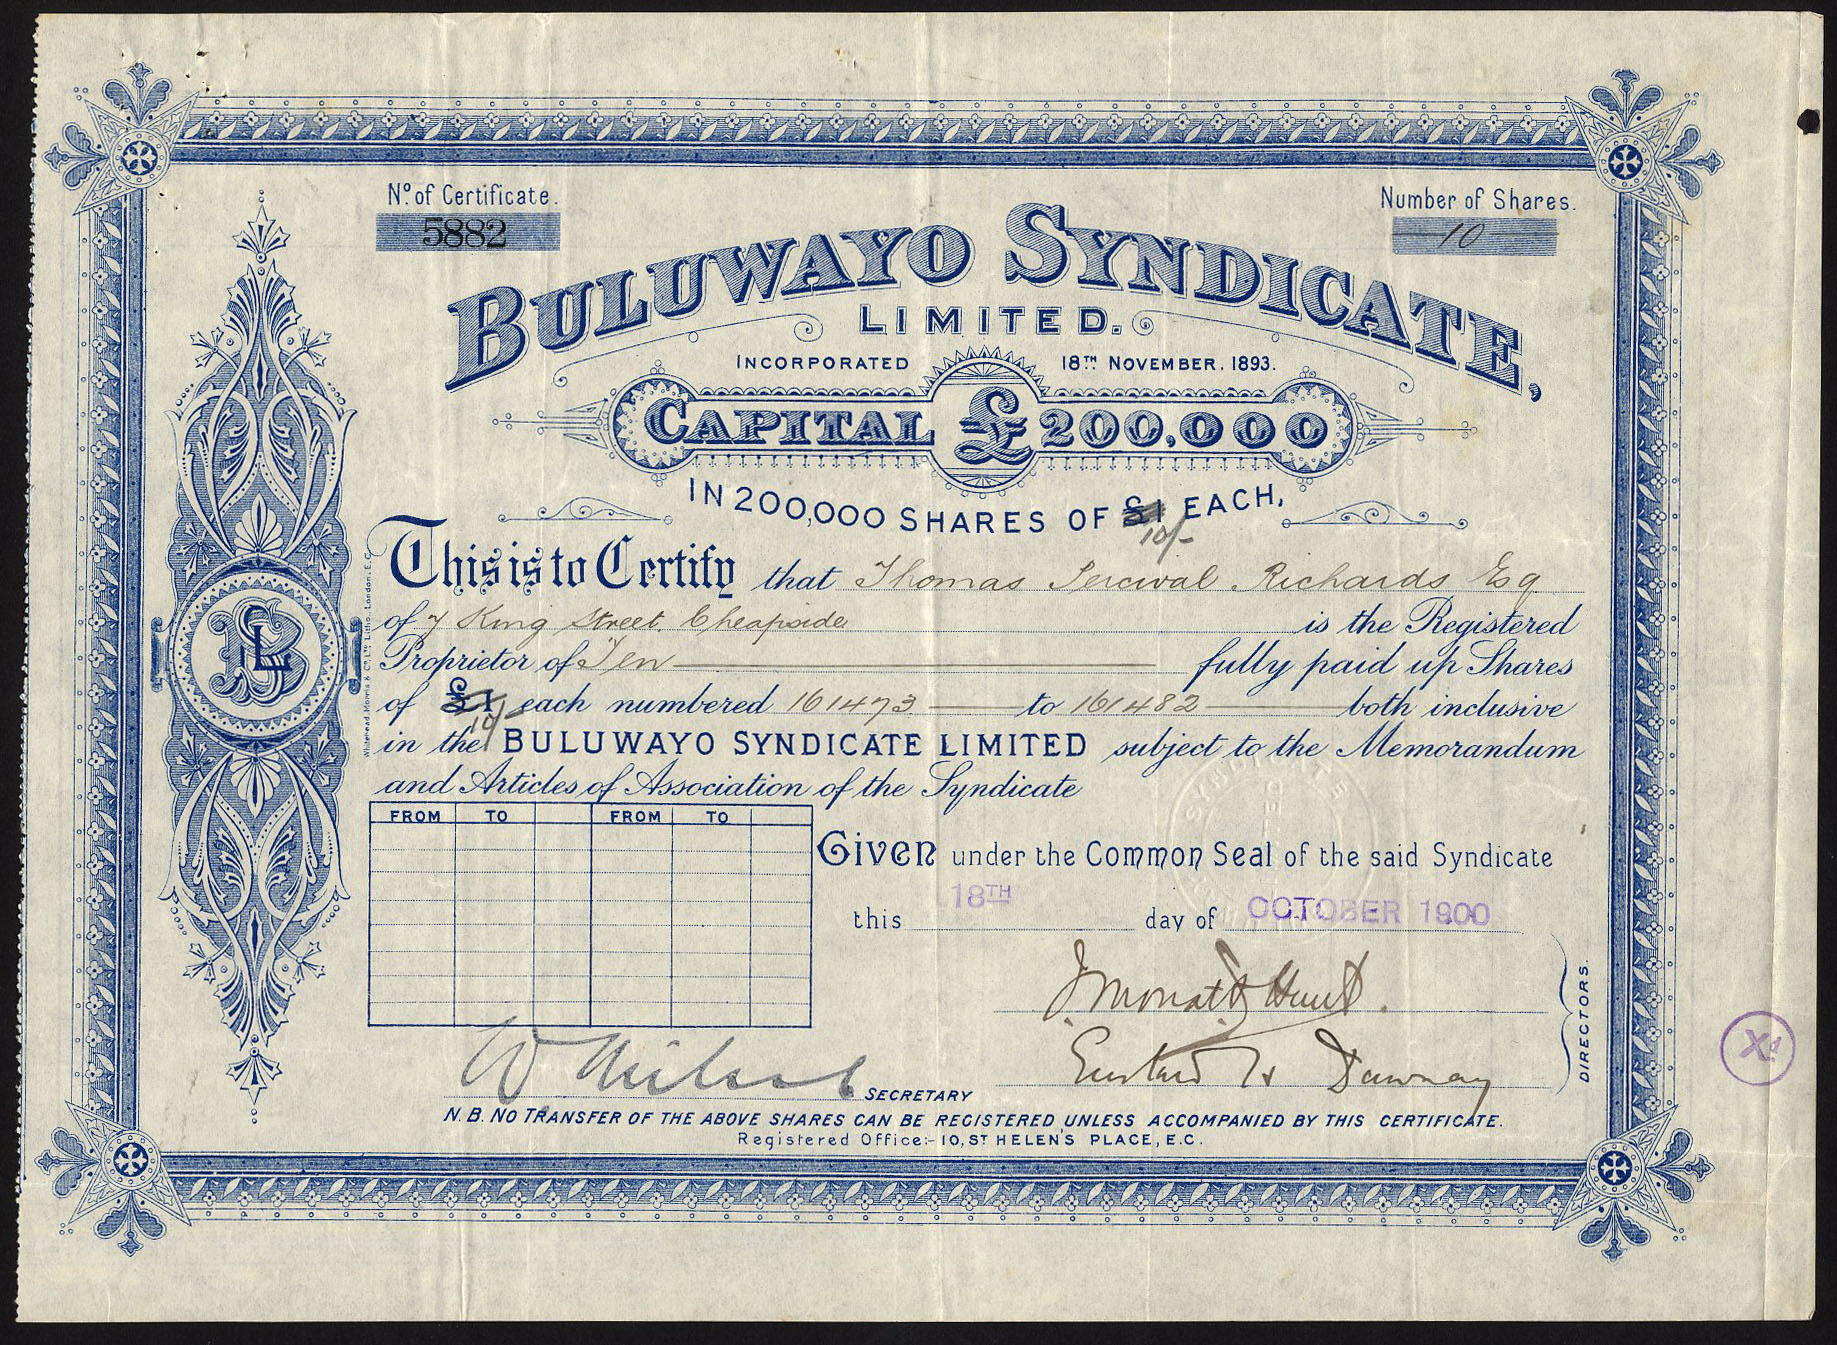 Nº of Certificate.
5882
Number of Shares.
10
BULUWAYO SYNDICATE,
LIMITED.
INCORPORATED 18TH NOVEMBER. 1893.
CAPITAL £200,000
IN 200,000 SHARES OF £1 EACH,
10/-
This is to Certify that Thomas Percival Richards Esq
of 7 King Street Cheapside is the Registered
Proprietor of Ten fully paid up Shares
of £1 each numbered 161473 to 161482 both inclusive
10/-
in the BULUWAYO SYNDICATE LIMITED subject to the Memorandum
and Articles of Association of the Syndicate
BSL
Whitehead, Morris & Co Ltd Litho. London. E.C.
FROM TO FROM TO
Given under the Common Seal of the said Syndicate
this 18TH day of OCTOBER 1900
Hunt
Dawnay
DIRECTORS.
W SECRETARY
N.B. NO TRANSFER OF THE ABOVE SHARES CAN BE REGISTERED UNLESS ACCOMPANIED BY THIS CERTIFICATE.
Registered Office:- 10, ST HELEN'S PLACE, E.C.